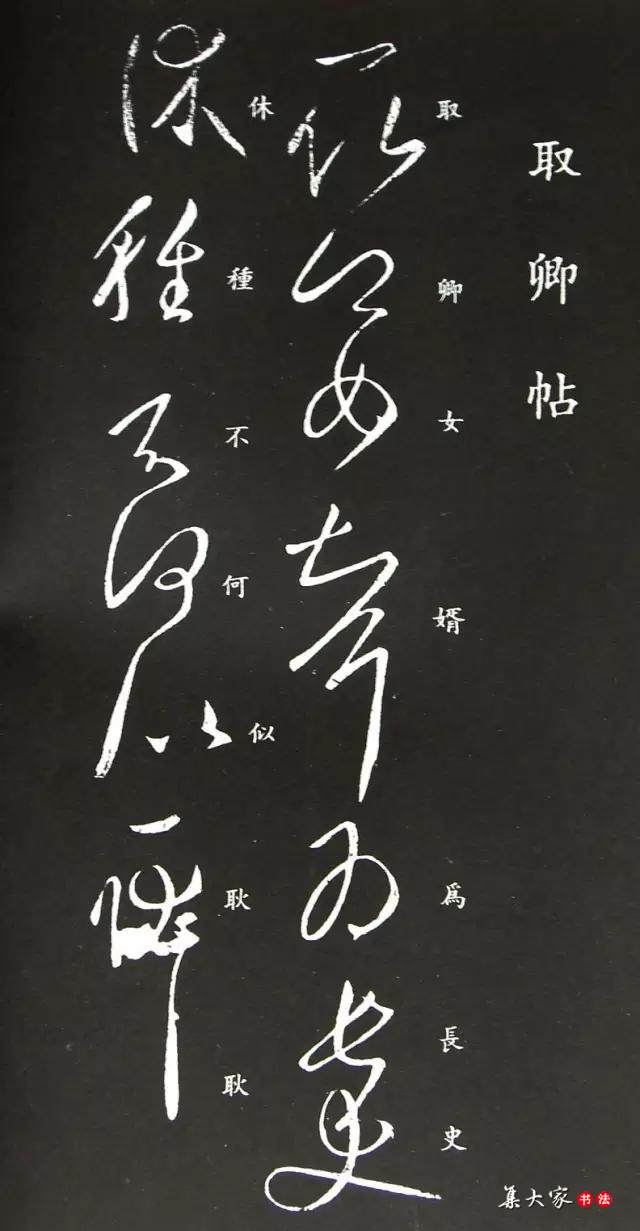 取卿帖
取卿女婿為長史
休種不何似耿耿
集大家书法